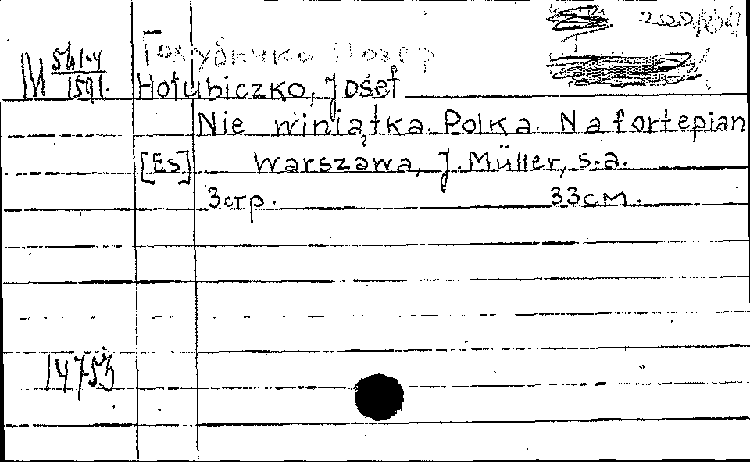 М 541-4
1591.
Голубичко Иозеф
Hołubiczko, Józef
Nie winiątka. Polka. Na fortepian
[Es] Warszawa, J. Müller, s.a.
3стр. 33см.
14753